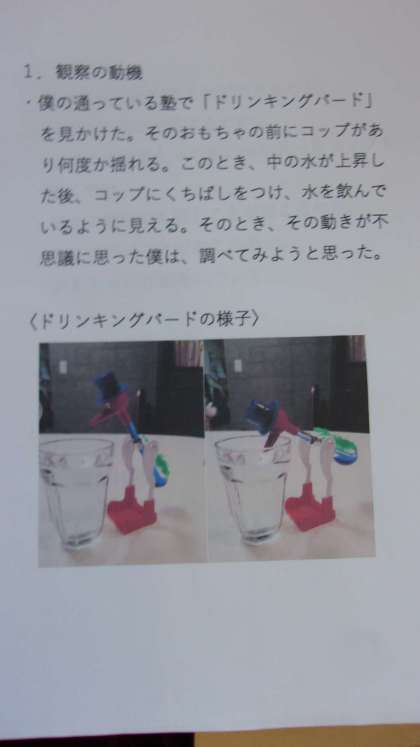 1．観察の動機
・僕の通っている塾で「ドリンキングバード」
を見かけた。そのおもちゃの前にコップがあ
り何度か揺れる。このとき、中の水が上昇し
た後、コップにくちばしをつけ、水を飲んで
いるように見える。そのとき、その動きが不
思議に思った僕は、調べてみようと思った。
〈ドリンキングバードの様子〉